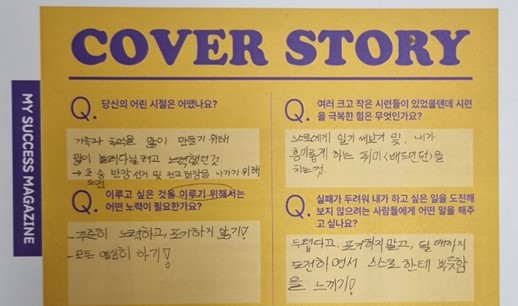 COVER STORY
MY SUCCESS MAGAZINE
Q. 당신의 어린 시절은 어땠나요?
가족과 추억을 많이 만들기 위해
많이 놀러다닐려고 노력했던것
→ 초등 반장 선거 및 전교 회장을 나가기 위해
도전
Q. 이루고 싶은 것을 이루기 위해서는
어떤 노력이 필요한가요?
- 꾸준히 노력하고, 포기하지 않기!
- 모든 열심히 하기!
Q. 여러 크고 작은 시련들이 있었을텐데 시련
을 극복한 힘은 무엇인가요?
스스로에게 일기 써보기 및, 내가
흥미롭게 하는 취미<배드민턴>을
치는것.
Q. 실패가 두려워 내가 하고 싶은 일을 도전해
보지 않으려는 사람들에게 어떤 말을 해주
고 싶나요?
두렵다고, 포기하지말고, 될 때까지
도전하면서 스스로한테 뿌듯함
을 느끼기!